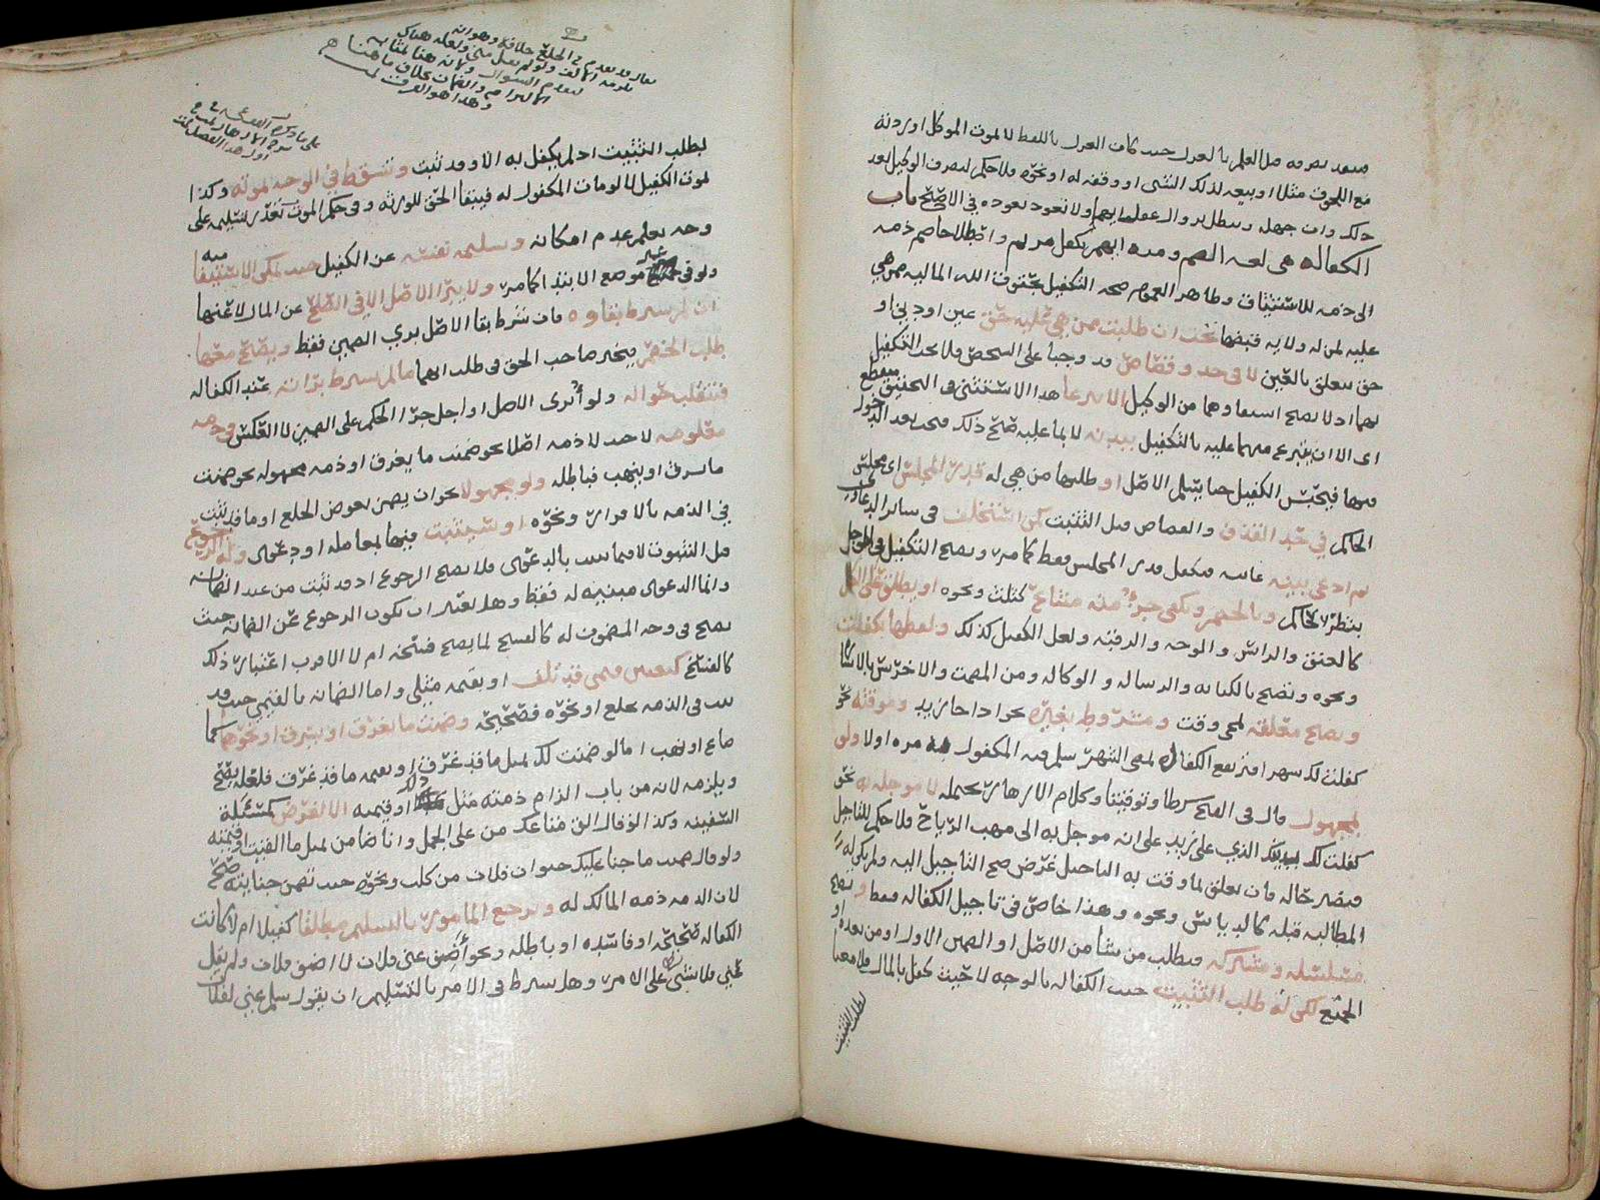 فينفذ تصرفه قبل العلم بالعزل حيث كان العزل باللفظ لا لموت الموكل او ردته
مع اللحوق مثلا او بيعه لذلك الشي او وقفه له او نحوه فلا حكم لتصرف الوكيل بعد
ذلك وان جهل وتبطل بزوال عقل ايهما ولا تعود بعوده في الاصح باب
الكفاله هي لغه الضم ومنه ايهم يكفل مريم واصطلاحا ضم ذمه
الى ذمه للاستيثاق وظاهر العموم صحه التكفيل بحقوق الله الماليه ممن هي
عليه لمن له ولايه قبضها تجب ان طلبت ممن هي عليه حق عين او دين او
حق يتعلق بالعين لا في حد وقصاص قد وجبا على الشخص فلا يجب التكفيل
بهما اذ لا يصح استيفاوهما من الوكيل الا تبرعا هذا الاستثنى في التحقيق منقطع
اى الا ان يتبرع من هما عليه بالتكفيل ببدنه لا بما عليه صح ذلك فيجب بعد الدخول
فيها فيحبس الكفيل حتى يسلم الاصل او طلبها من هي له قدر المجلس اى مجلس
الحاكم في حد القذف والقصاص قبل التثبت كمن استحلف في سائر الدعاوى
ثم ادعى بينه غائبه فيكفل قدر المجلس فقط كما مر وتصح التكفيل في المؤجل
بنظر الحاكم وبالخصم ويكفي جزء منه مشاع كثلث ونحوه او يطلق على الكل
كالعنق والراس والوجه والرقبه ولعل الكفيل كذلك ولفظها تكفلت
ونحوه وتصح بالكتابه والرساله والوكاله ومن المصمت والاخرس بالاشارة
وتصح معلقه لمجي وقت ومشروطه بغيره نحو اذا جا زيد وموقته نحو
كفلت لك شهرا فترتفع الكفاله لمضي الشهر سلم فيه المكفول به مره او لا ولو
لمجهول قال في الفتح شرطا وتوقيتا وكلام الازهار يحتمله لا موجله به نحو
كفلت لك الذي على زيد على انه موجل به الى مهب الرياح فلا حكم للتاجيل
فتصير حاله فان تعلق بما وقت به التاجيل غرض صح التاجيل اليه ولم يكن له
المطالبه قبله كالدياس ونحوه وهذا خاص في تاجيل الكفاله فقط وتصح
مسلسله ومشتركه فيطلب من شا من الاصل او الضمين الاول او من بعده او
الجميع لكن له طلب التثبيت حيث الكفاله بالوجه لا حيث كفل بالمال فلا معنا
لطلب التثبيت
يقال قد تقدم في الخلع خلافه وهو انه
يلزمه الالف ولو لم يقل مني ولعله هناك
لتقدم السوال وكان هنا لمثابه
الالتزام والضمان بخلاف ما هنا هـ
وهذا هو الفرق
على ما ذكره الفقيه
شرح الازهار في
اول هذا الفصل
لطلب التثبيت اذ لم يكفل به الا وقد ثبت وتسقط في الوجه بموته وكذا
لموت الكفيل لا لو مات المكفول له فيبقا الحق للورثه وفي حكم الموت تعذر تسليمه على
وجه يعلم عدم امكانه وتسليمه نفسه عن الكفيل حيث يمكن الاستيفا منه
ولو في غير موضع الابتدا كما مر ولا يبرا الاصل الا في الصلح عن المال لا عنها
ان لم يشرط بقاوه فان شرط بقا الاصل بري الضمين فقط ويصح معها
طلب الخصم يتخير صاحب الحق في طلب ايهما ما لم يشرط برائته عند الكفاله
فتنقلب حواله ولو ابرى الاصل او اجل جرا الحكم على الضمين لا العكس وذمه
معلومه لاحد لا ذمه اصلا نحو ضمنت ما يغرق او ذمه مجهوله نحو ضمنت
ما سرق او ينهب فباطله ولو مجهولا نحو ان يضمن بعوض الخلع او ما قد ثبت
في الذمه بالاقرار ونحوه او سيثبت فيها بمعامله او دعوى وله الرجوع
قبل الثبوت لا فيما ثبت بالدعوى فلا يصح الرجوع اذ قد ثبت من عند الضمانه
وانما الدعوى مبنيه له فقط وهل يعتبر ان تكون الرجوع عن الضمانه حيث
تصح في وجه المضمون له كالفسخ لما يصح فسخه ام لا الاقرب اعتبار ذلك
كالفسخ كبعض فيمن قد تلف او بقيمه مثلى واما الضمانه بالقيمى حيث قد
ثبت في الذمه بخلع او نحوه فصحيحه وضمنت ما يغرق او يسرق او نحوها كما
ضاع او نهب اما لو ضمنت لك بمثل ما قد غرق او بقيمه ما قد غرق فلعله يصح
ويلزمه لانه من باب الزام ذمته مثل ذلك او قيمته الا لغرض كمسئلة
السفينه وكذا لو قال الق متاعك من على الجمل وانا ضامن لمثل ما القيت او قيمته
ولو قال ضمنت ما جنا عليك حيوان فلان من كلب ونحوه حيث تضمن جنايته صح
لان الذمه ذمه المالك له ويرجع المامور بالتسليم مطلقا كفيلا ام لا كانت
الكفاله صحيحه او فاسده او باطله ونحو اضمن عني فلان لا اضمن فلان ولم يقل
عني فلا شي له على الامر وهل يشرط في الامر بالتسليم ان يقول سلم عني لفلان